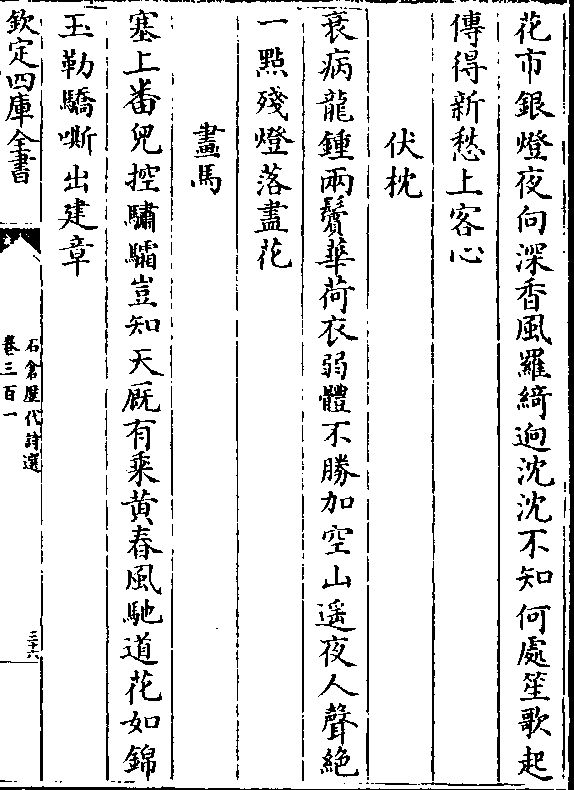 花市銀燈夜向深香風羅綺迥沈沈不知何處笙歌起
傳得新愁上客心
伏枕
衰病龍鍾兩鬢華荷衣弱體不勝加空山遥夜人聲絶
一點殘燈落盡花
畫馬
塞上番兒控驌驦豈知天厩有乘黄春風馳道花如錦
玉勒驕嘶出建章
欽定四庫全書
石倉歷代詩選
卷三百一
三十六